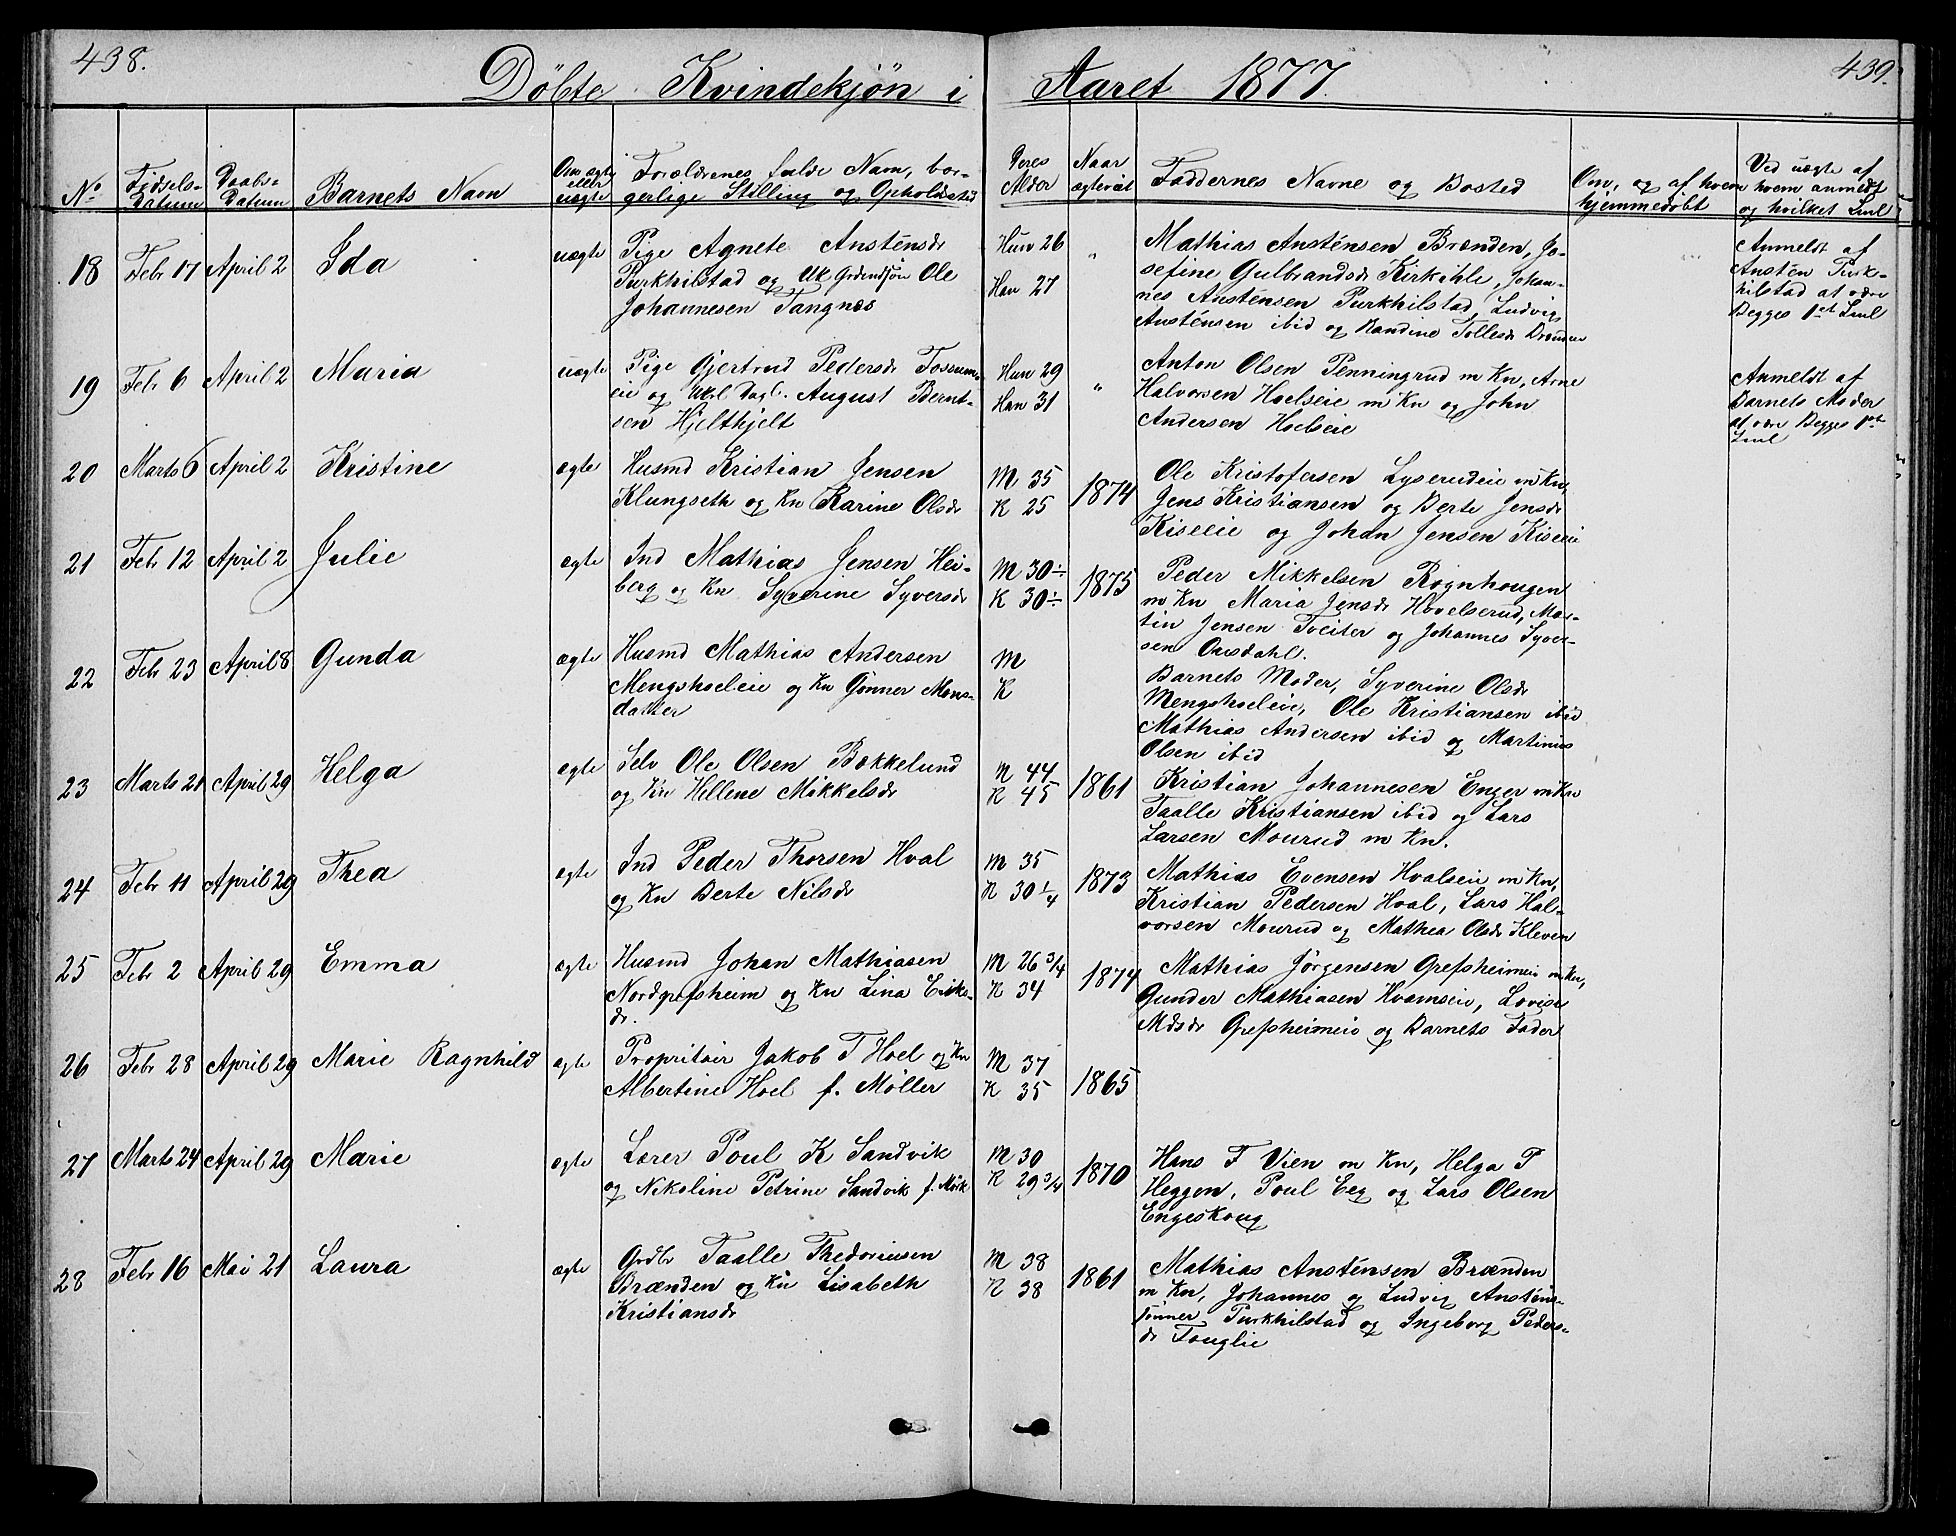 438.
Döbte Kvindekjøn i Aaret 1877.
439.
No
Fødsels-
Datum
Daabs-
Datum
Barnets Navn
Om ægte
eller
uægte
Forældrenes fulde Navn, bor-
gerlige Stilling og Opholdssted
Deres
Alder
Naar
ægteviet
Faddernes Navne og Bosted
Om, og af hvem
hjemmedøbt
Ved uægte af
hvem anmeldt
og hvilket Leiel
18 Febr 17 April 2 Ida uægte
Pige AgneteAnsténsdr
Purkhilstad og Uk Grdmdsön Ole
Johannesen Tangnæs
Hun 26
Han 27
"
MathiasAnsténsen Brænden, Jo-
sefine Gulbrandsdr Kirkihle, Johan-
nes Ansténsen Purkhilstad, Ludvig
Ansténsen ibid og Randine Tollesdr Brænden
Anmeldt af
Anstén Purk-
hilstad at være
Begges 1st Leiel
19 Febr 6 April 2 Maria uægte
Pige Gjertrud Pedersdr Fossum-
eie og Ukl Dagl. August Bernt-
sen Hjelthjelt
Hun 29
Han 31
"
Anton Olsen Penningrud m Kn, Arne
Halvorsen Hoelseie m Kn og John
Andersen Hoelseie
Anmeldt af
Barnets Moder
at være Begges 1st
Leiel
20 Marts 6 April 2 Kristine ægte
Husmd Kristian Jensen
Klungseth og Kn Karine Olsdr
M 35
K 25
1874
Ole Kristofersen Lyserudeie m Kn,
Jens Kristiansen og Berte Jensdr
Kiseeie og Johan Jensen Kiseeie
21 Febr 12 April 2 Julie ægte
Ind Mathias Jensen Hei-
berg og Kn Syverine Syversdr
M 30
K 30
1875
Peder Mikkelsen Rognhougen
m Kn Maria Jensdr Hovelserud, Mar-
tin Jensen Tveiter og Johannes Syver-
sen Onsdahl.
22 Febr 23 April 8 Gunda ægte
Husmd Mathias Andersen
Mengshoeleie og Kn Gønner Mons-
datter
M
K
Barnets Moder, Syverine Olsdr
Mengshoeleie, Ole Kristiansen ibid
Mathias Andersen ibid og Martinus
Olsen ibid
23 Marts 21 April 29 Helga ægte
Selv Ole Olsen Bækkelund
og Kn Hellene Mikkelsdr
M 44
K 45
1861
Kristian Johannesen Enger m Kn
Taalle Kristiansen ibid og Lars
Larsen Mourud m Kn.
24 Febr 11 April 29 Thea ægte
Ind Peder Thorsen Hval
og Kn Berte Nilsdr
M 35
K 30 1/4
1873
Mathias Evensen Hvalseie m Kn,
Kristian Pedersen Hval, Lars Hal-
vorsen Mourud og Mathea Olsdr Kleven
25 Febr 2 April 29 Emma ægte
Husmd Johan Mathiasen
Nordgrefsheim og Kn Lina Eriks-
dr.
M 26 3/4
K 34
1874
Mathias Jörgensen Grefsheimeie m Kn,
Gunder Mathiasen Hvamseie, Lovise
Mdsdr Grefsheimeie og Barnets Fader
26 Febr 28 April 29 Marie Ragnhild ægte
Propritair Jakob T Hoel og Kn
Albertine Hoel f. Møller
M 37
K 35
1865
27 Marts 24 April 29 Marie ægte
Lærer Poul K Sandvik
og Nikoline Petrine Sandvik f. Mörk
M 30
K 29 3/4
1870
Hans F Vien m Kn, Helga P
Heggen, Poul Eeg og Lars Olsen
Engeskoug
28 Febr 16 Mai 21 Laura ægte
Grdbr Taalle Thedoriusen
Brænden og Kn Lisabeth
Kristiansdr
M 38
K 38
1861
Mathias Ansténsen Brænden
m Kn, Johannes og Ludvig Ansténs-
sönner Purkhilstad og Ingeborg Peders-
dr Fouglie